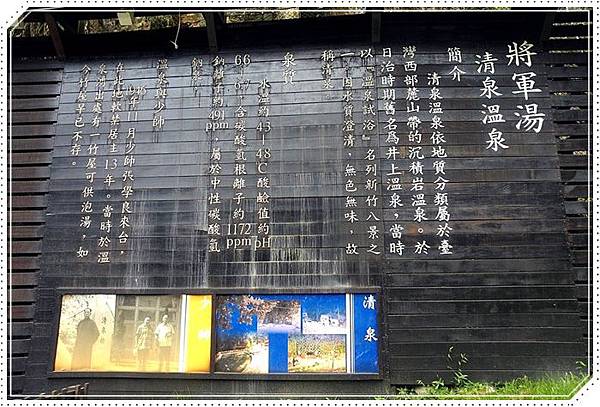 將軍湯
清泉溫泉
簡介
清泉溫泉依地質分類屬於臺
灣西部麓山帶的沉積岩溫泉。於
日治時期舊名為井上溫泉，當時
以「溫泉試浴」名列新竹八景之
一，因水質澄清，無色無味，故
稱清泉。
泉質
水溫約43－48℃酸鹼值約pH
6.6－6.7，含碳酸氫根離子約1172ppm
鈉離子約491ppm，屬於中性碳酸氫
鈉泉。
溫泉與少帥
1946年11月少帥張學良來台，
在此地軟禁居住13年。當時於溫
泉湧出處有一竹屋可供泡湯，如
今竹屋早已不存。
清泉